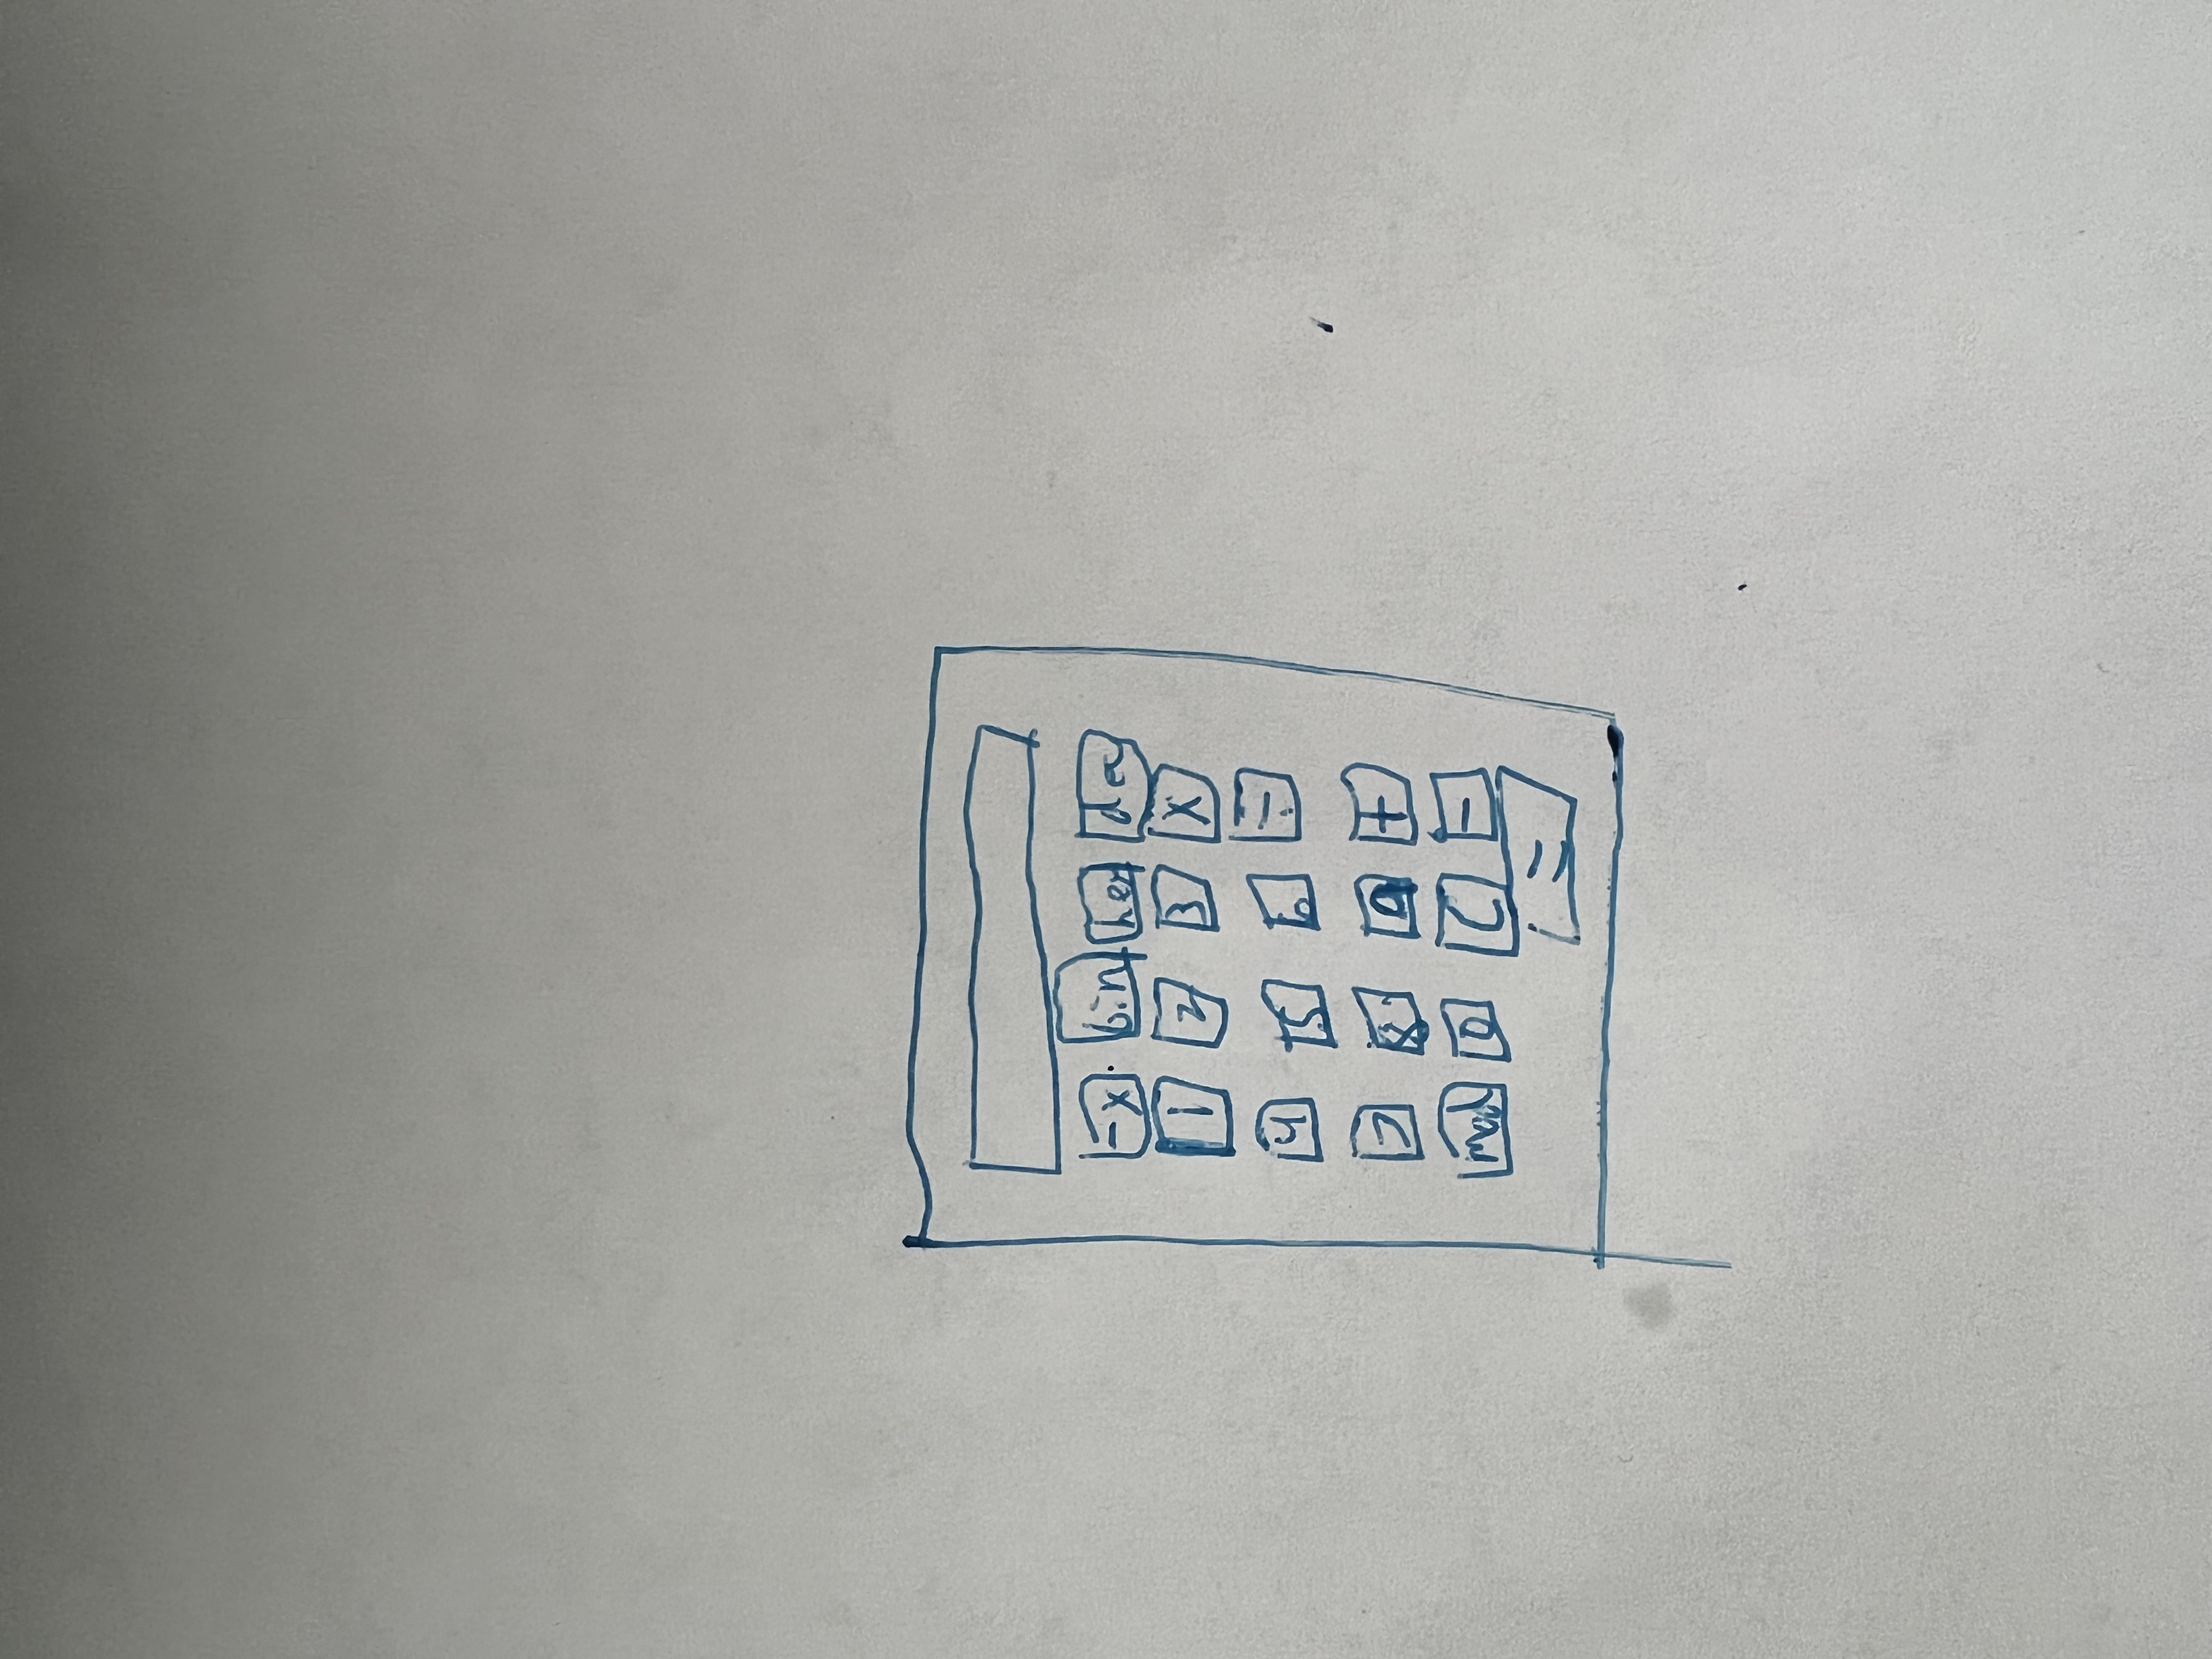 -x bin hex dec
1 2 3 X
4 5 6 ÷
7 8 9 +
mod 0 C -
=